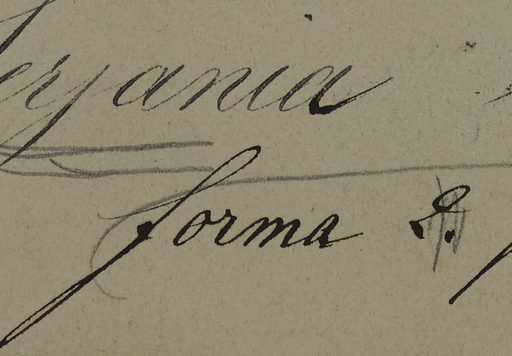 erjania
forma 2.